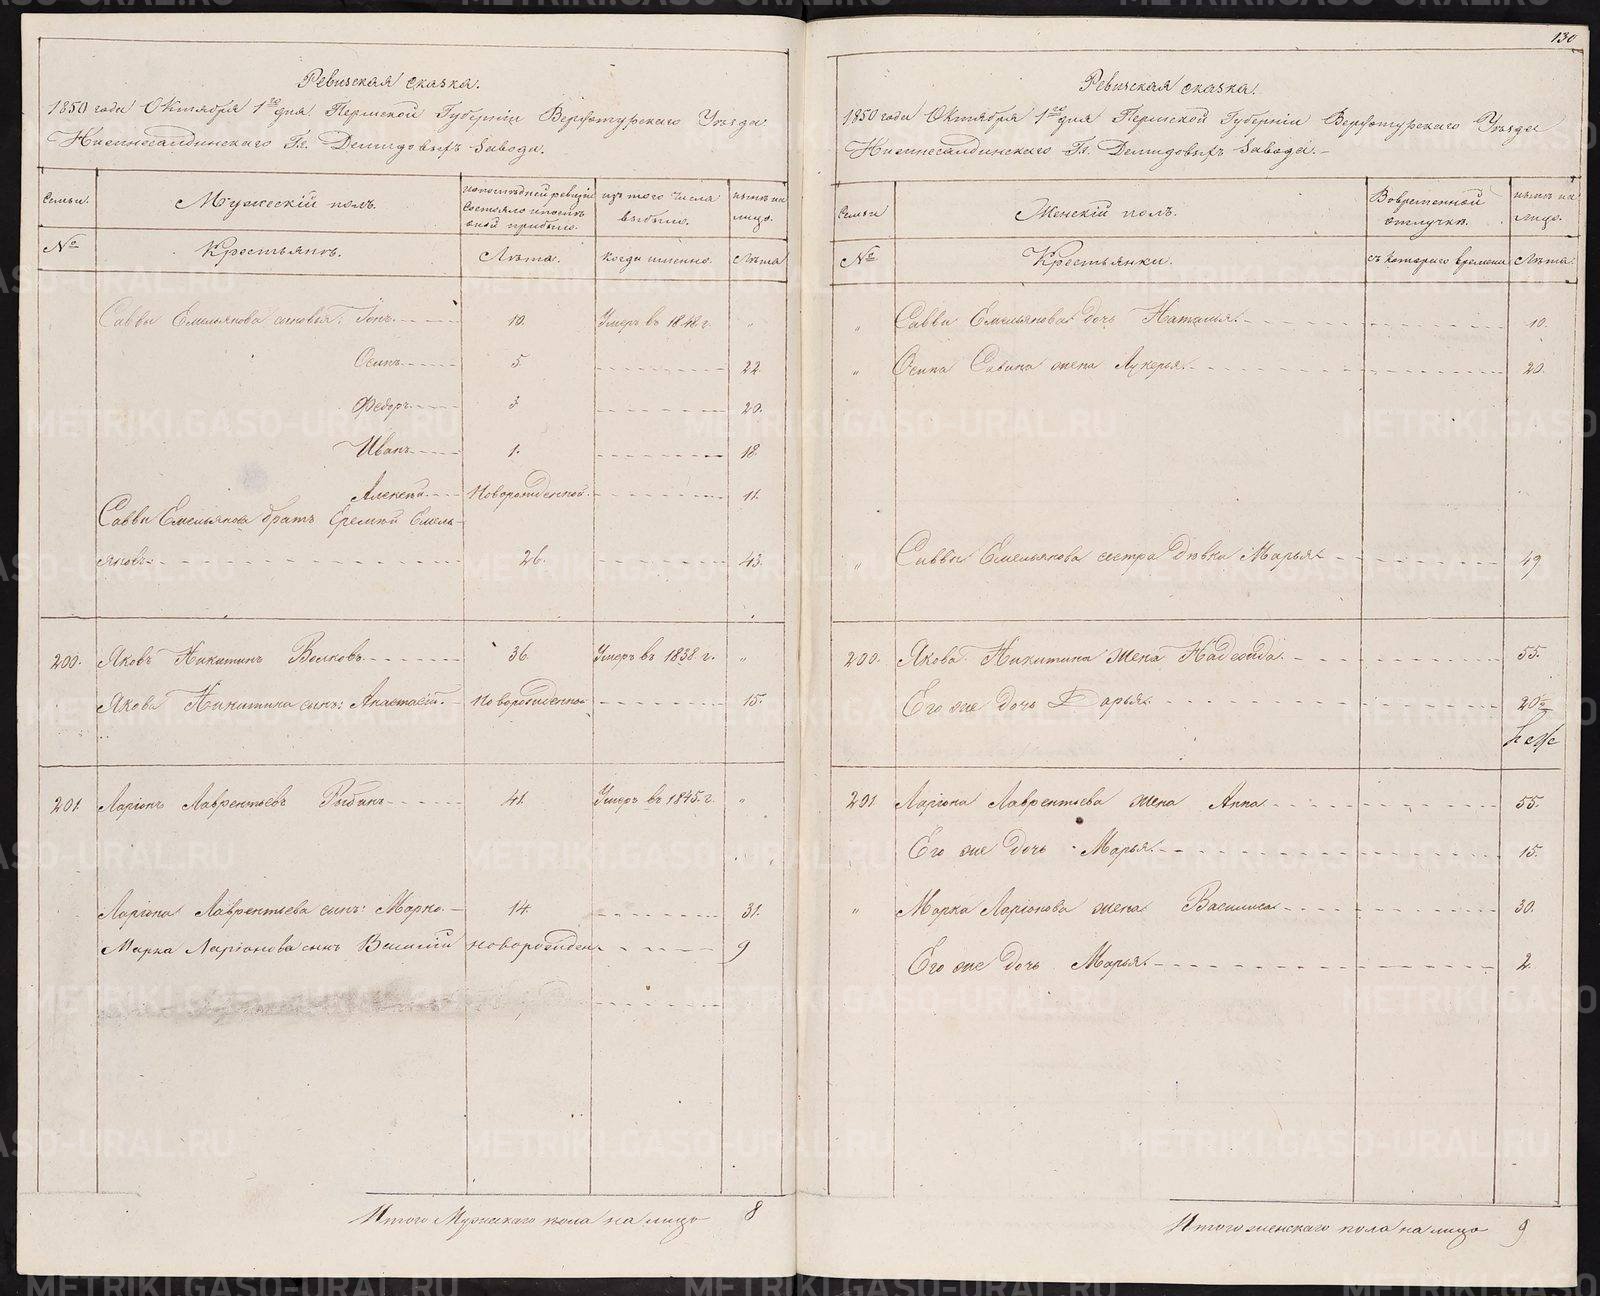 130
Ревизская сказка.
1850 года Октября 1го дня Пермской Губерніи Верхотурскаго Уѣзда
Нижнесалдинскаго Гг. Демидовыхъ Завода.
Семьи.
Мужескій полъ.
По последней ревизіи состояло и после оной прибыло.
изъ того числа выбыло.
ныне на лицо.
№
Крестьяновъ.
Лѣта.
когда именно.
Лѣта
Саввы Емельянова сыновья: Іонъ. 10. Умеръ въ 1848 г. "
Осипъ 5. 22.
Федоръ 3. 20.
Иванъ 1. 18.
Алексей Новорожденной 11.
Саввы Емельянова братъ Еремей Емель-
яновъ 26. 43.
200. Яковъ Никитинъ Волковъ 36. Умеръ въ 1838 г. "
Якова Никитина сынъ: Анастасій. Новорожденной 15.
201. Ларіонъ Лаврентьевъ Рыбинъ 41. Умеръ въ 1845 г. "
Ларіона Лаврентьева сынъ: Марко. 14. 31.
Марка Ларіонова сынъ Василій новорожден. 9
Итого Мужскаго пола на лицо 8
Ревизская сказка.
1850 года Октября 1го дня Пермской Губерніи Верхотурскаго Уѣзда
Нижнесалдинскаго Гг. Демидовыхъ Завода.
Семьи
Женскій полъ.
Во временной отлучке.
ныне на лицо.
№
Крестьянки.
съ котораго времени
Лѣта.
" Саввы Емельянова дочь Наталья. 10.
" Осипа Савина жена Лукерья. 20.
" Саввы Емельянова сестра Дѣвка Марья 49
200. Якова Никитина жена Надежда. 55.
Его же дочь Дарья. 20
201 Ларіона Лаврентьева жена Анна 55.
Его же дочь Марья. 15.
" Марка Ларіонова жена Василиса 30.
Его же дочь Марья. 2.
Итого женскаго пола на лицо 9
METRIKI.GASO-URAL.RU